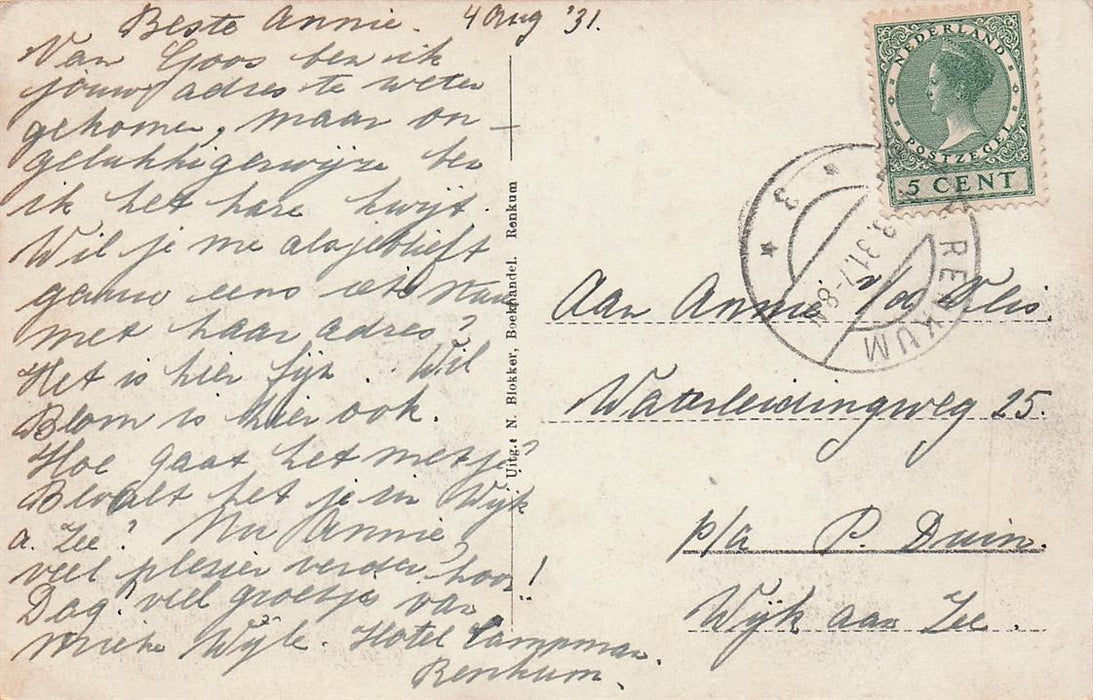 Beste Annie. 4 Aug '31.
Van Goos ben ik
jouw adres te weten
gekomen, maar on-
gelukkigerwijze ben
ik het hare kwijt.
Wil je me alsjeblieft
gauw eens iets
met haar adres?
Het is hier fijn. Wil
Blom is hier ook.
Hoe gaat het met je?
Bevalt het je in Wijk
a. Zee? Nu Annie
veel plezier verder hoor!
Dag! veel groetjes van
Hotel Campman.
Renkum.
Uitg.: N. Blokker, Boekhandel. Renkum
NEDERLAND
POSTZEGEL
5 CENT
RENKUM
3
Aan Annie v/d
Waterleidingweg 25.
p/a P. Duin.
Wijk aan Zee.